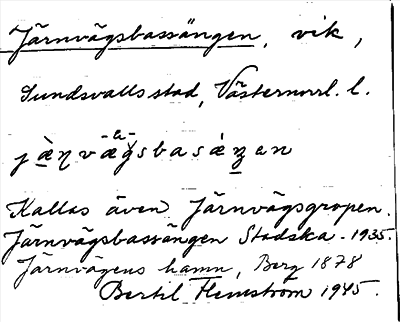 Järnvägsbassängen, vik,
Sundsvalls stad, Västernorrl. l.
jæ̀ɳvægsbasæ̀ŋən
Kallas även Järnvägsgropen.
Järnvägsbassängen Stadska - 1935.
Järnvägens hamn, Berg 1878
Bertil Flemström 1945.